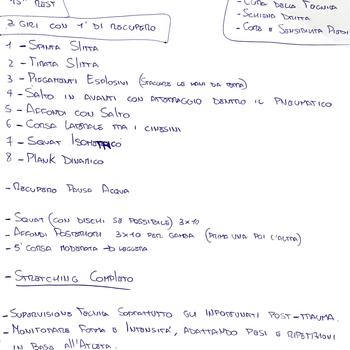 15" REST
2 GIRI CON 1' DI RECUPERO
- CURA DELLA TECNICA
- SCHIENA DRITTA
- CORE E SENSIBILITÀ PIEDI
1 - SPINTA SLITTA
2 - TIRATA SLITTA
3 - PIEGAMENTI ESPLOSIVI (STACCARE LE MANI DA TERRA)
4 - SALTO IN AVANTI CON ATTERRAGGIO DENTRO IL PNEUMATICO
5 - AFFONDI CON SALTO
6 - CORSA LATERALE TRA I CINESINI
7 - SQUAT ISOMETRICO
8 - PLANK DINAMICO
- RECUPERO PAUSA ACQUA
- SQUAT (CON DISCHI SE POSSIBILE) 3x10
- AFFONDI POSTERIORI 3x10 PER GAMBA (PRIMA UNA POI L'ALTRA)
- 5' CORSA MODERATA → LEGGERA
- STRETCHING COMPLETO
- SUPERVISIONE TECNICA SOPRATTUTTO GLI INFORTUNATI POST-TRAUMA.
- MONITORARE FORMA E INTENSITÀ, ADATTANDO PESI E RIPETIZIONI
IN BASE ALL'ATLETA.